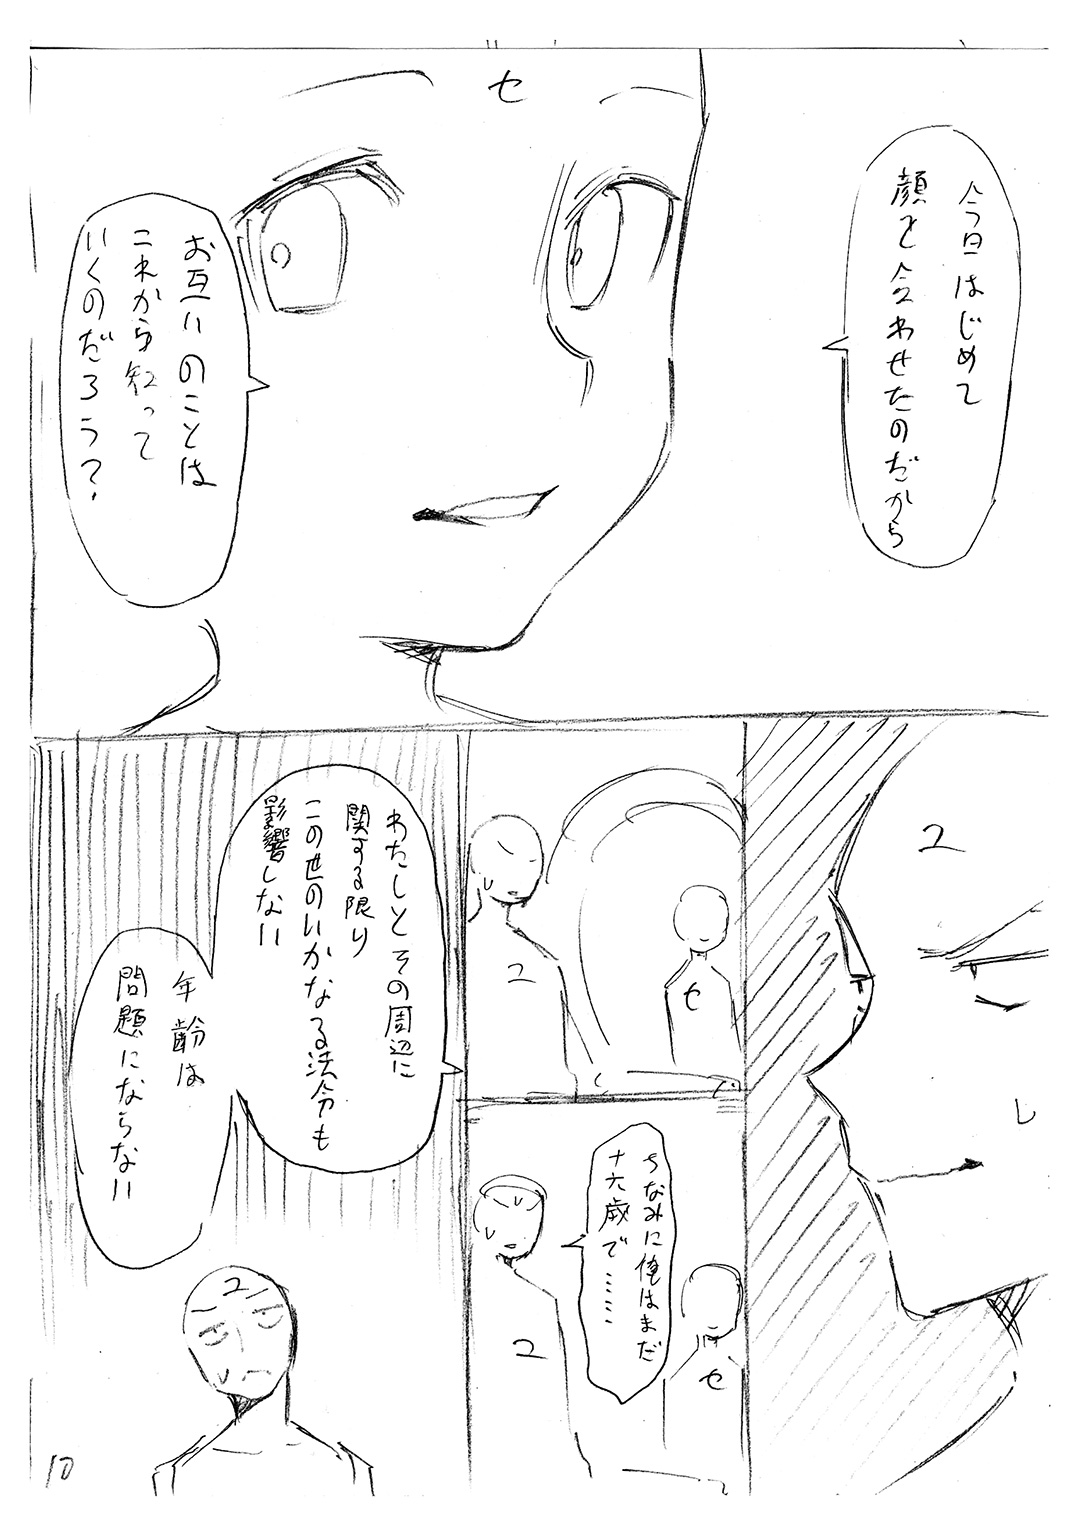 セ
今日はじめて
顔を合わせたのだから
お互いのことは
これから知って
いくのだろう？
ユ
ユ
セ
ちなみに俺はまだ
十六歳で……
ユ
セ
わたしとその周辺に
関する限り
この世のいかなる法令も
影響しない
年齢は
問題にならない
ユ
10